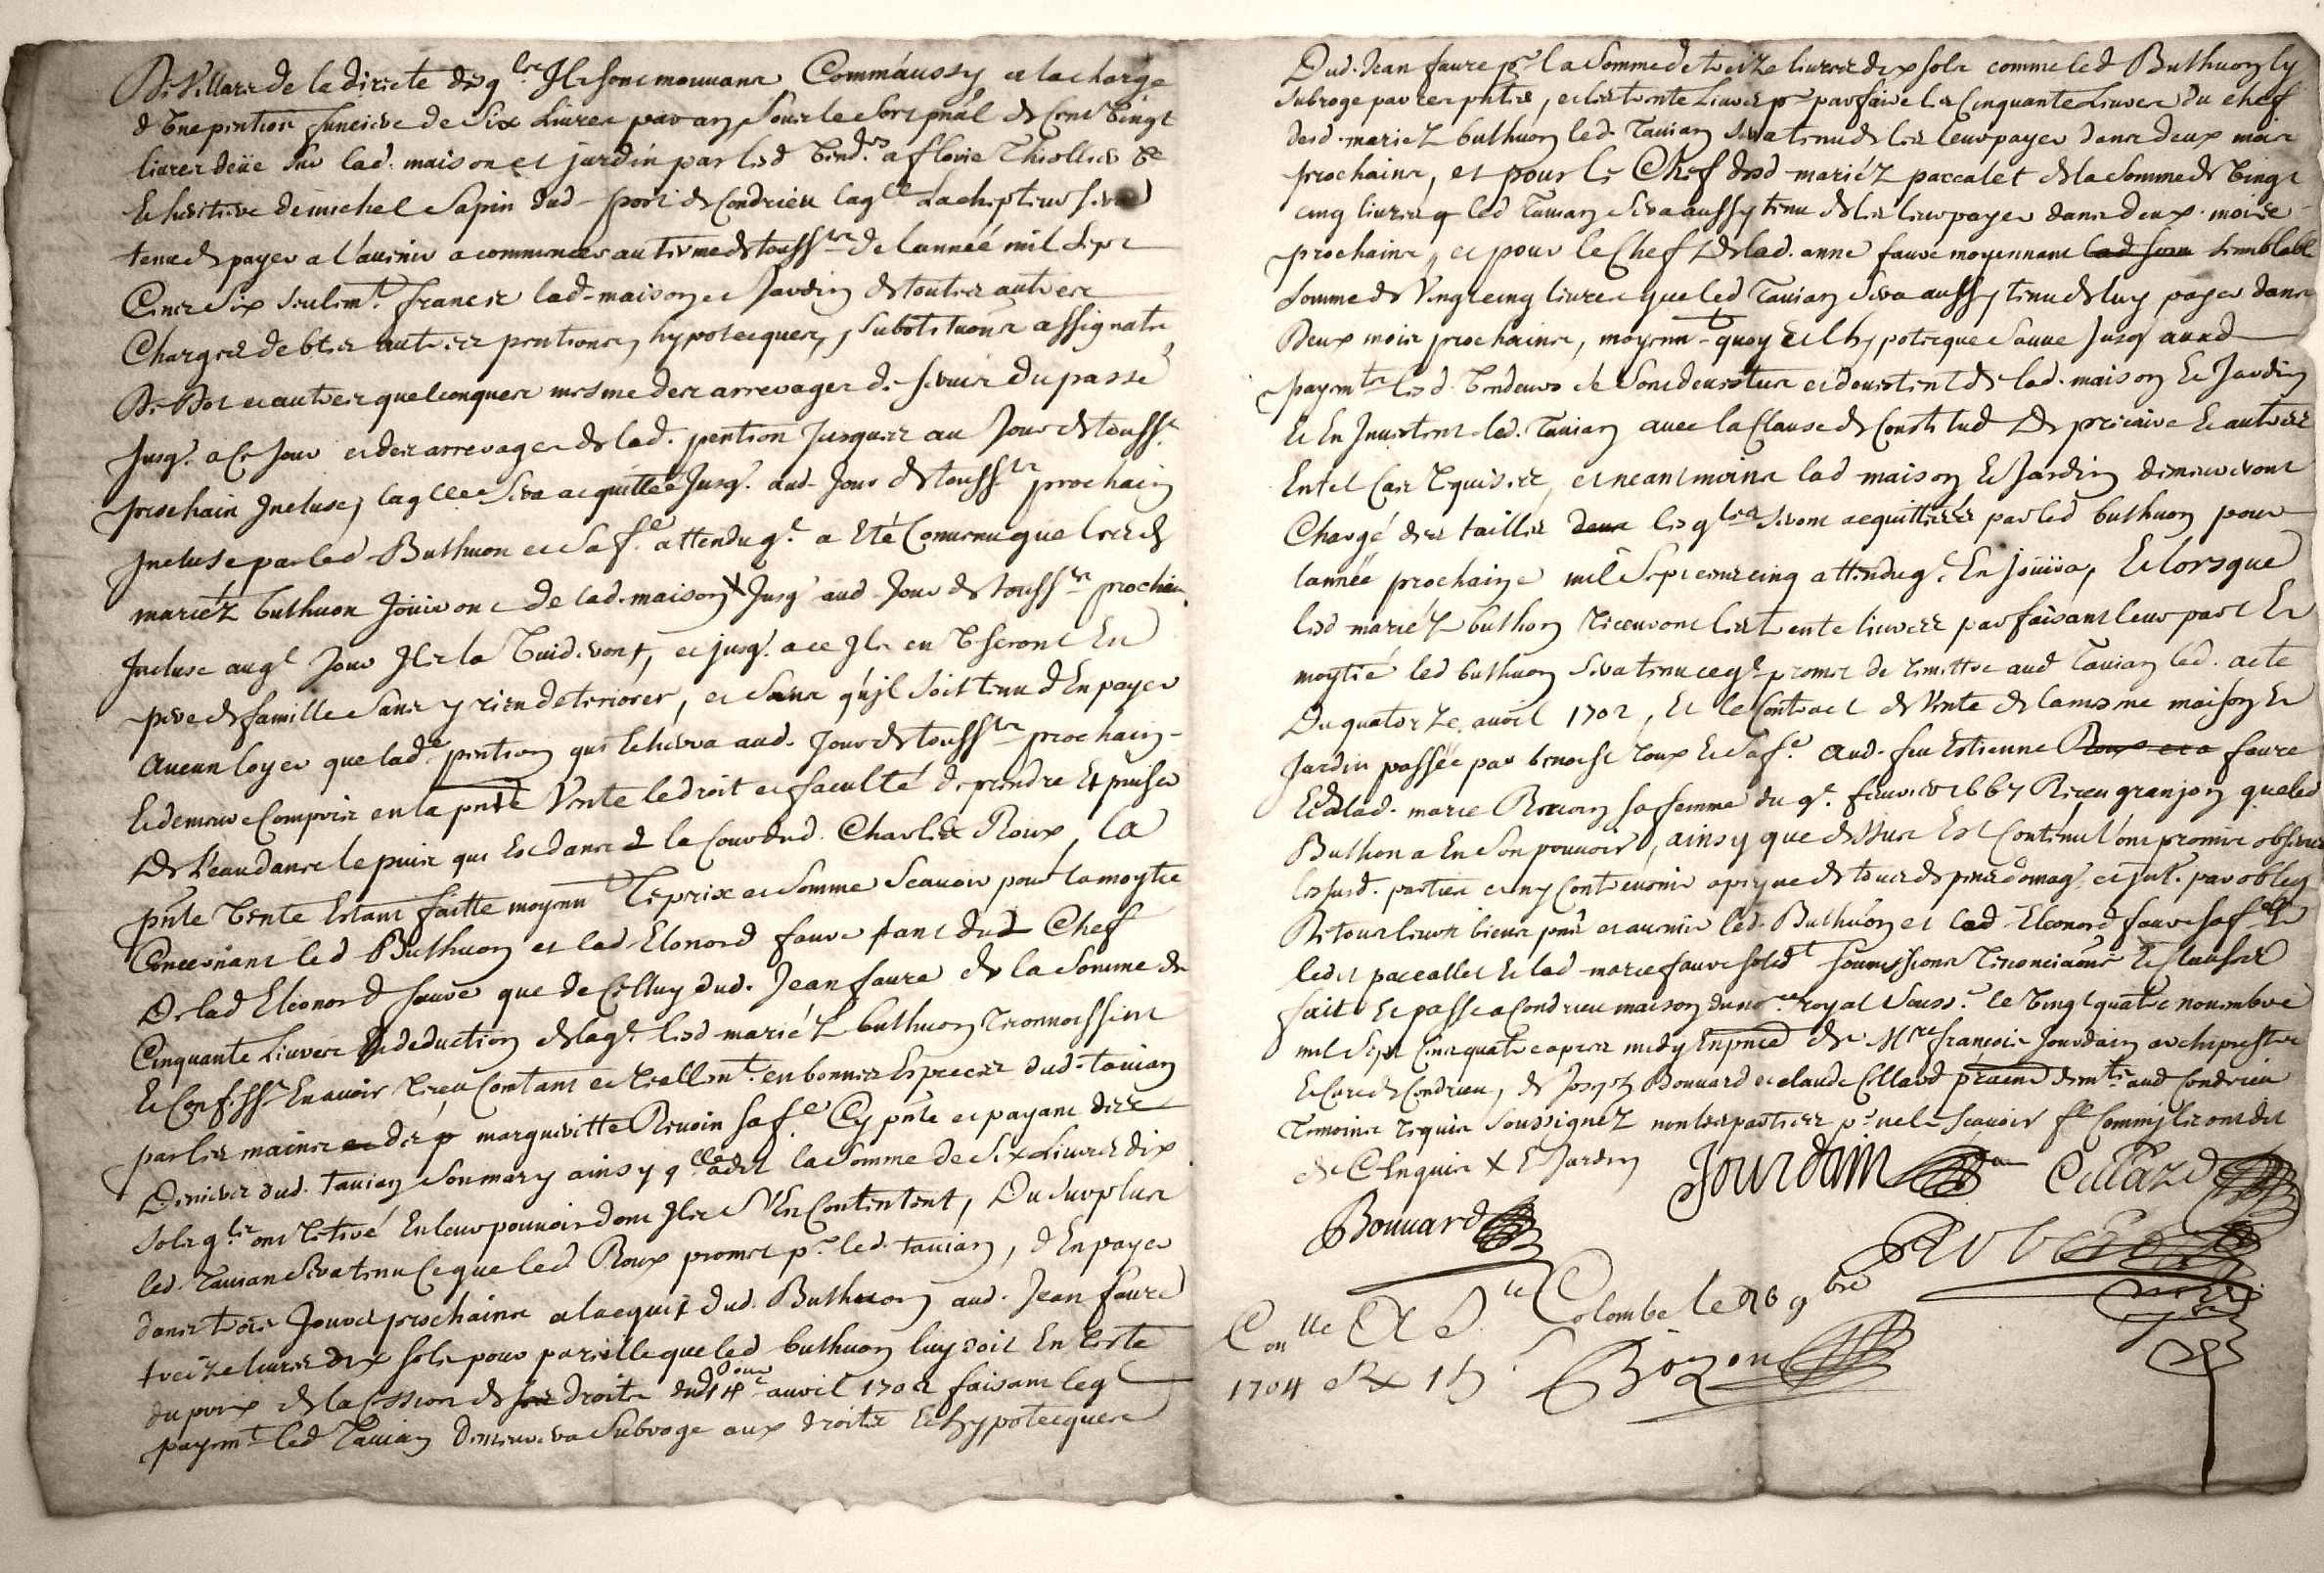 De Villars de la directe desq.les Ils sont mouvans Comm'aussy a la charge
d'une pention fonciere de Six Livres par an Sous le sort p'nal de Cent vingt
livres deüe sur lad. maison et jardin par lesd vend.rs a flovie Thiollier v.e
et heritiere de michel Sapin dud port de Condrieu laq.lle Lachepteur sera
tenu de payer a l'avenir a commencer au terme de touss.ts de lannéé mil Sept
Cents Six seulem.t franche lad. maison et Jardin de toutes autres
Charges debtes autres pentions, hypotecques, substitutions assignats
De Dot et autres quelconques mesme des arrerages de servis du passé
Jusq. a Ce Jour et des arrerages de lad. pention Jusques au Jour de touss.ts
prochain Incluse, laq.lle sera acquittéé Jusq. aud. Jour de touss.ts prochain
Incluse par led Buthuon et Sa f.e attendu q.e a Eté Convenu que lesd
mariéz buthuon Joüiront de lad. maison X Jusq aud Jour de touss.ts prochain
Incluse auq.l Jour Ils la vuideront, et jusq. a ce Ils en Useront En
pere de famille Sans y rien deteriorer, et Sans qu'jl soit tenu d'En payer
Aucun loyer que lad.e pention qui Echerra aud. Jour de touss.ts prochain
Et demeure Comprise en la p'nte Vente le droit et faculté de prendre Et puiser
De l'eau dans le puis qui Est dans la Cour dud. Charles Roux, La
p'nte Vente Estant faitte moyenn.t Le prix et Somme Scavoir pour la moytie
Concernant led Buthuon et lad Elonord faure tant dud Chef
De lad Eleonord faure que de Celluy dud. Jean faure de la Somme de
Cinquante Livres En deduction de laq.e lesd mariéz buthuon reconnoissent
Et Confess.t En avoir Receu Contant et reellem.t en bonnes Especes dud. tavian
par les mains de margueritte Revoin sa f.e Cy p'nte et payant des
Deniers dud. tavian Son mary ainsy q.lle a dit la Somme de Six Livres dix
sols q.ls ont retiré En leur pouvoir dont Ils S'En Contentent, Du surplus
led. Tavian Sera tenu Ce que led Roux promet p.r led. tavian, d'En payer
dans trois Jours prochains a lacquit dud. Buthuon aud. Jean faure
treize livres dix sols pour pareille que led buthuon luy doit En reste
du prix de la Cession de ses droits dud 14.e avril 1702 faisant leq.l
payem.t led Tavian Demeurera Subroge aux droits Et hypotecques
Dud. Jean faure p.r la Somme de treize livres dix sols comme led Buthuon ly
subroge par ces p'ntes, et les trente Livres p.r parfaire les Cinquante Livres du chef
desd. mariéz buthuon led. Tavian sera tenu de les leur payer dans deux mois
prochains, et pour le Chef desd mariéz paccalet de la Somme de vingt
cinq livres q led Tavian Sera aussy tenu de les leur payer dans deux mois
prochains, et pour le Chef de lad. anne faure moyennant lad som semblable
Somme de Vingt cinq livres que led Tavian Sera aussy tenu de luy payer dans
Deux mois prochains, moyenn.t quoy Et l'hypotecque Sauve Jusq auxd
payem.ts lesd. Vendeurs se Sont devestus et devestent de lad. maison Et Jardin
Et En Investent led. Tavian avec la Clause de Constitud De precaire Et autres
En tel Cas requises, et neanmoins lad maison Et Jardin demeureront
Chargé des tailles lesq.lles seront acquittéés par led buthuon pour
lannéé prochaine mil Sept cents cinq attendu q.e En joüira, Et lorsque
lesd mariéz buthon recevront les trente livres parfaisant leur part Et
moytié led buthuon Sera tenu ce q.e promet de remettre aud Tavian led. acte
Du quatorze avril 1702, Et le Contract de Vente de la mesme maison Et
Jardin passéé par benoist roux Et sa f.e aud. feu Estienne Roux et a faure
Et a lad. marie Revoin sa femme du 9.e fevrier 1667 Receu granjon que led
Buthon a En Son pouvoir, ainsy que dessus Est Contenu l'ont promis observer
les susd. parties et ny Contrevenir a peyne de tous despens domag. et jnt. par oblig
De tous leurs biens p'nts et avenir led. Buthuon et lad Eleonord faure sa f.e
ledit paccallet Et lad marie faure solid.t soumissions renonciaons Et clauses
fait Et passé a Condrieu maison du no.re royal Souss.é le vingt quatre novembre
mil Sept Cens quatre apres midy En p'nce de M.re françois Jourdain archiprestre
Et Curé de Condrieu, de Joseph Bouvard et claude Cellard praticiens dem.ts aud Condrieu
Temoins requis Soussignéz non les parties p.r ne le Scavoir f.e Comm'jls ont dit
de C'Enquis X Et Jardin
Jourdain
Cellard
Bouvard
Robert
Con.lle A S.te Colombe le 28 9.bre
1704
Bozon